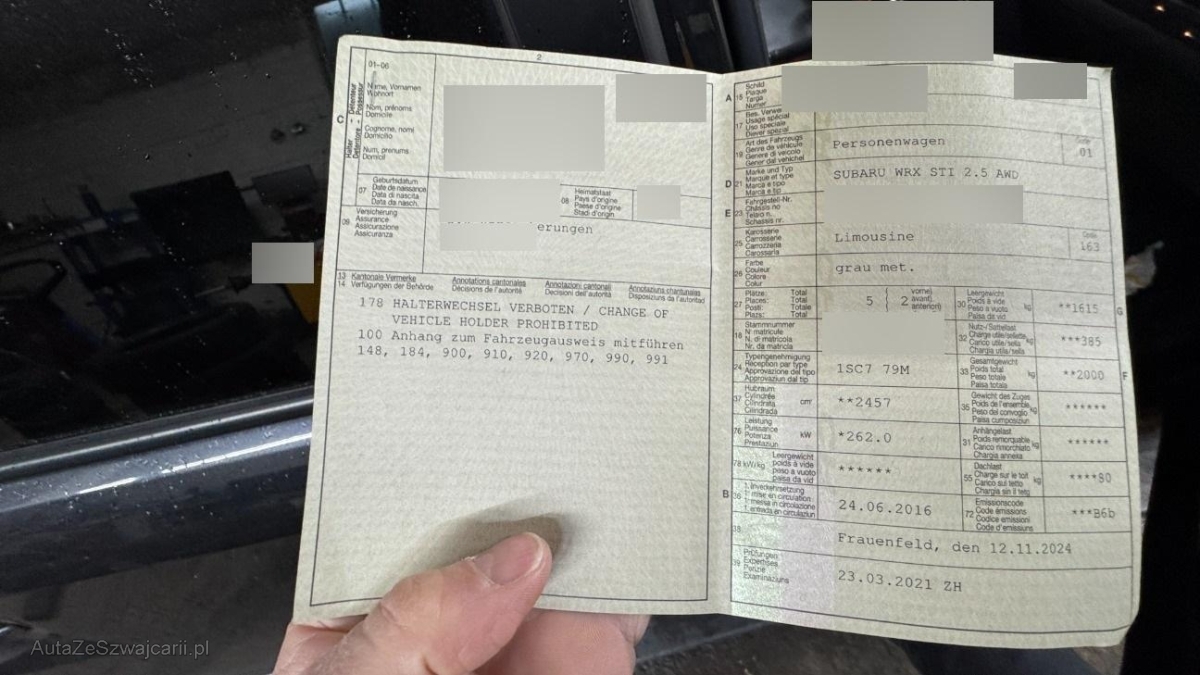 2
01-06
Name, Vornamen
Wohnort
Nom, prénoms
Domicile
Cognome, nomi
Domicilio
Num, prenums
Domicil
C
Halter – Détenteur
Detentore – Possessur
07
Geburtsdatum
Date de naissance
Data di nascita
Data da nasch.
08
Heimatstaat
Pays d'origine
Paese d'origine
Stadi d'origin
09
Versicherung
Assurance
Assicurazione
Assicuranza
erungen
13
14
Kantonale Vermerke
Verfügungen der Behörde
Annotations cantonales
Décisions de l'autorité
Annotazioni cantonali
Decisioni dell'autorità
Annotaziuns chantunalas
Disposiziuns da l'autoritad
178 HALTERWECHSEL VERBOTEN / CHANGE OF
VEHICLE HOLDER PROHIBITED
100 Anhang zum Fahrzeugausweis mitführen
148, 184, 900, 910, 920, 970, 990, 991
A
15
Schild
Plaque
Targa
Numer
17
Bes. Verwen
Usage spécial
Uso speciale
Diever spezial
19
Art des Fahrzeugs
Genre de véhicule
Genere di veicolo
Gener dal vehichel
Personenwagen
Code
01
D
21
Marke und Typ
Marque et type
Marca e tipo
Marca e tip
SUBARU WRX STI 2.5 AWD
E
23
Fahrgestell-Nr.
Châssis no
Telaio n.
Schassis nr.
25
Karosserie
Carrosserie
Carrozzeria
Carossaria
Limousine
Code
163
26
Farbe
Couleur
Colore
Colur
grau met.
27
Plätze: Total
Places: Total
Posti: Totale
Plazs: Total
5 { 2
vorne)
avant)
anteriori)
30
Leergewicht
Poids à vide
Peso a vuoto
Paisa da vid
kg
**1615
G
18
Stammnummer
N° matricule
N. di matricola
Nr. da matricla
32
Nutz-/Sattellast
Charge utile/sellette
Carico utile/sella
Chargia utila/sella
kg
***385
24
Typengenehmigung
Réception par type
Approvazione del tipo
Approvaziun dal tip
1SC7 79M
33
Gesamtgewicht
Poids total
Peso totale
Paisa totala
kg
**2000
F
37
Hubraum
Cylindrée
Cilindrata
Cilindrada
cm³
**2457
35
Gewicht des Zuges
Poids de l'ensemble
Peso del convoglio
Paisa cumposiziun
kg
******
76
Leistung
Puissance
Potenza
Prestaziun
kW
*262.0
31
Anhängelast
Poids remorquable
Carico rimorchiato
Chargia annexa
kg
******
78 kW/kg
Leergewicht
poids à vide
peso a vuoto
paisa da vid
******
55
Dachlast
Charge sur le toit
Carico sul tetto
Chargia sin il tetg
kg
****80
B
36
1. Inverkehrsetzung
1re mise en circulation
1a messa in circolazione
1. entrada en circulaziun
24.06.2016
72
Emissionscode
Code émissions
Codice emissioni
Code d'emissiuns
***B6b
38
Frauenfeld, den 12.11.2024
39
Prüfungen
Expertises
Perizie
Examinaziuns
23.03.2021 ZH
AutaZeSzwajcarii.pl